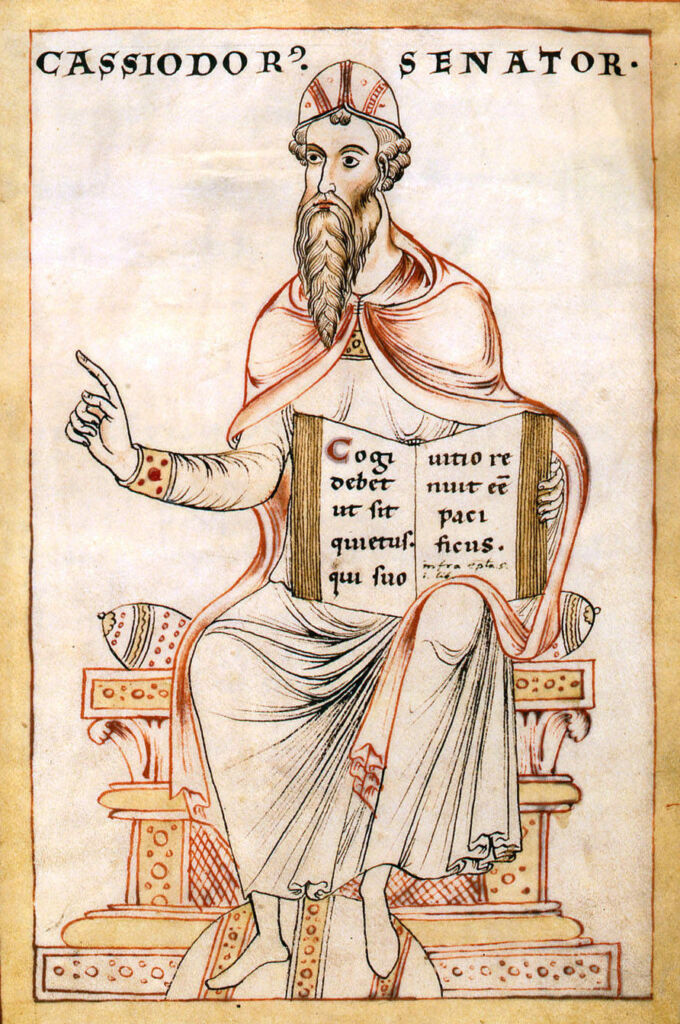 CASSIODORꝰ. SENATOR.
Cogi
debet
ut sit
quietus.
qui suo
uitio re
nuit eē
paci
ficus.
infra ep̄la